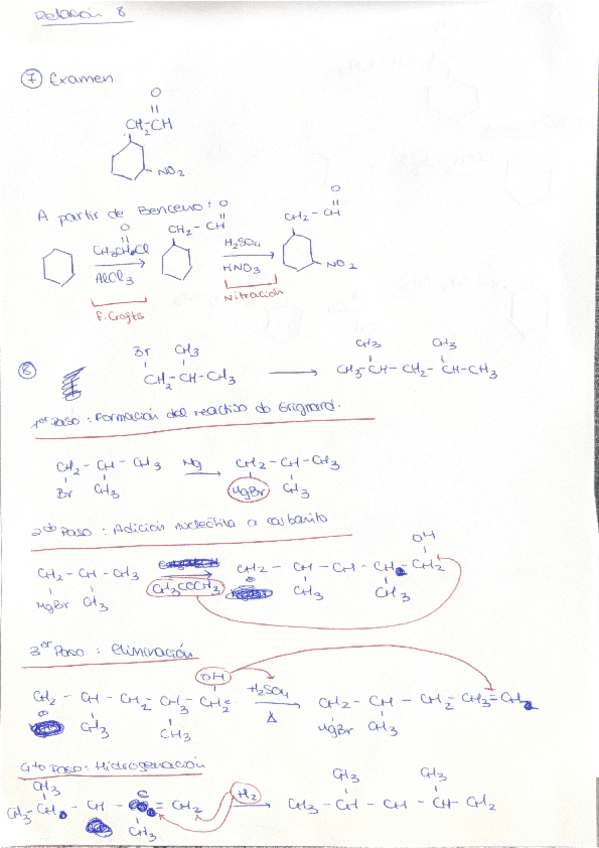 Relación 8
⑦ Examen
O
||
CH2CH
NO2
A partir de Benceno:
O
||
CH3CH2Cl
AlCl3
F. Crafts
O
||
CH2 - CH
H2SO4
HNO3
Nitración
O
||
CH2 - CH
NO2
⑧
Br CH3
CH2 - CH - CH3
CH3 CH3
CH3 - CH - CH2 - CH - CH3
1er Paso: Formación del reactivo de Grignard.
CH2 - CH - CH3
Br CH3
Mg
CH2 - CH - CH3
MgBr CH3
2do Paso: Adición nucleófila a carbonilo
CH2 - CH - CH3
MgBr CH3
CH3COCH3
OH
CH2 - CH - CH - CH2 - CH2
CH3 CH3
3er Paso: Eliminación
OH
CH2 - CH - CH2 - CH3 - CH2
CH3 CH3
H2SO4
Δ
CH2 - CH - CH2 - CH3 = CH2
MgBr CH3
4to Paso: Hidrogenación
CH3
CH3 - CH - CH = CH2
CH3
H2
CH3 CH3
CH3 - CH - CH - CH - CH2